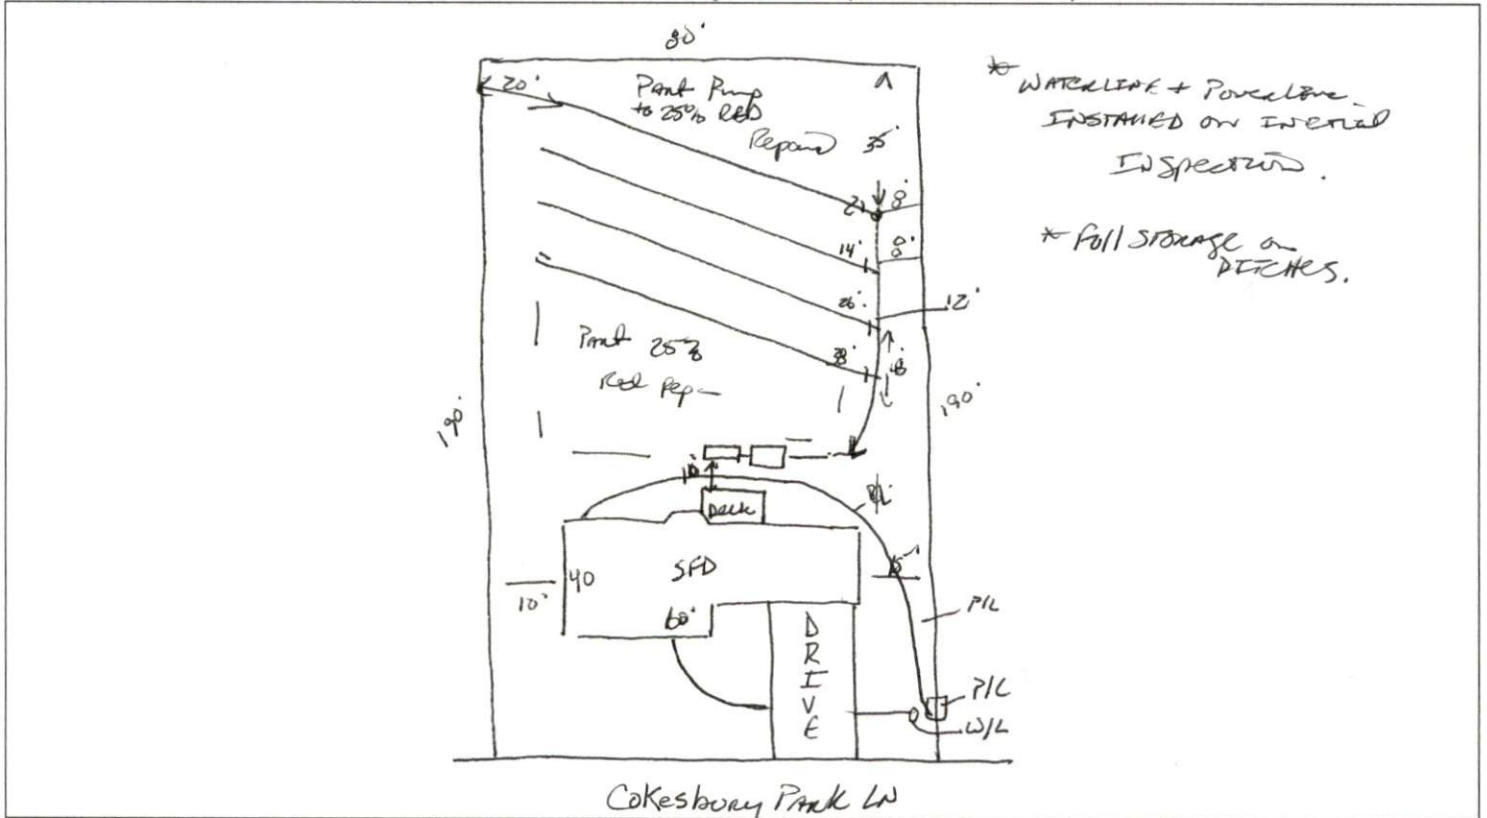 80'
20'
Part Pump
to 25% RED
Repair
35'
2'
8'
14'
8'
26'
12'
38'
48'
Part 25%
Red Rep
190'
190'
10'
Deck
P/L
15'
SFD
40
10'
60'
DRIVE
P/L
P/L
W/L
Cokesbury Park LN
* WATERLINE + Powerline
INSTALLED ON INITIAL
INSpection.
* Full STORAGE on
DITCHES.